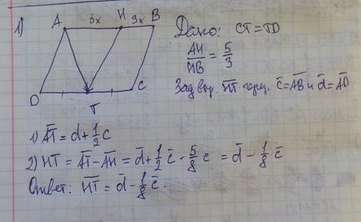 1)
A 5x H 3x B
D T C
Дано: CT = TD
AH/HB = 5/3
HT c̄ = AB и d̄ = AD
1) AT = d + 1/2 c
2) HT = AT - AH = d + 1/2 c̄ - 5/8 c̄ = d̄ - 1/8 c̄
Ответ: HT = d̄ - 1/8 c̄.